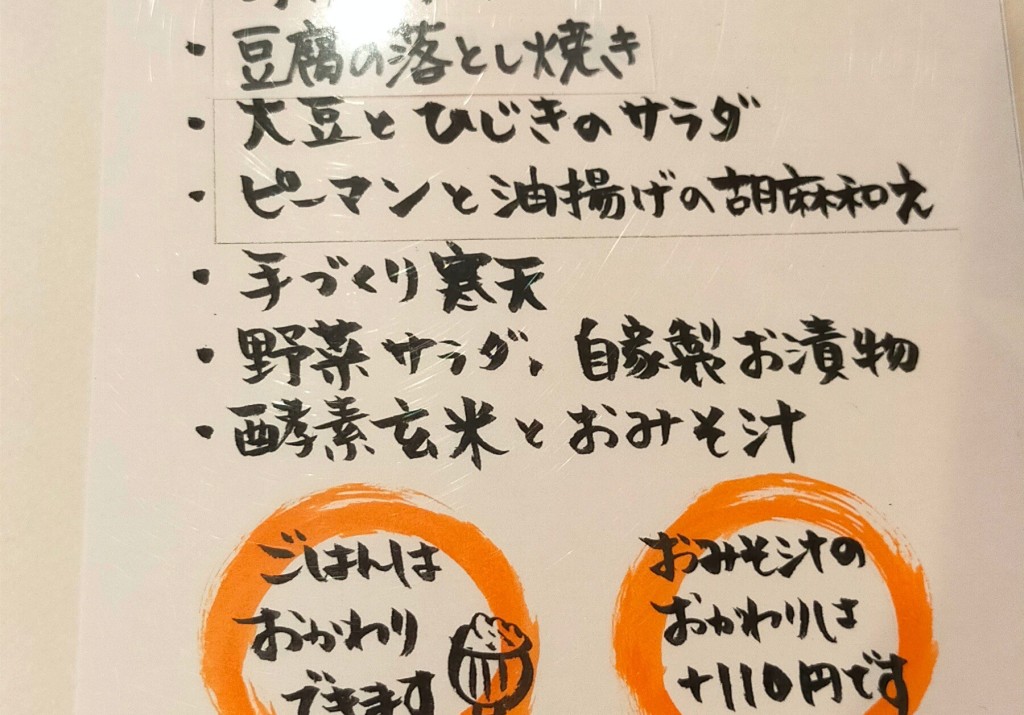 ・豆腐の落とし焼き
・大豆とひじきのサラダ
・ピーマンと油揚げの胡麻和え
・手づくり寒天
・野菜サラダ、自家製お漬物
・酵素玄米とおみそ汁
ごはんは
おかわり
できます
おみそ汁の
おかわりは
+110円です